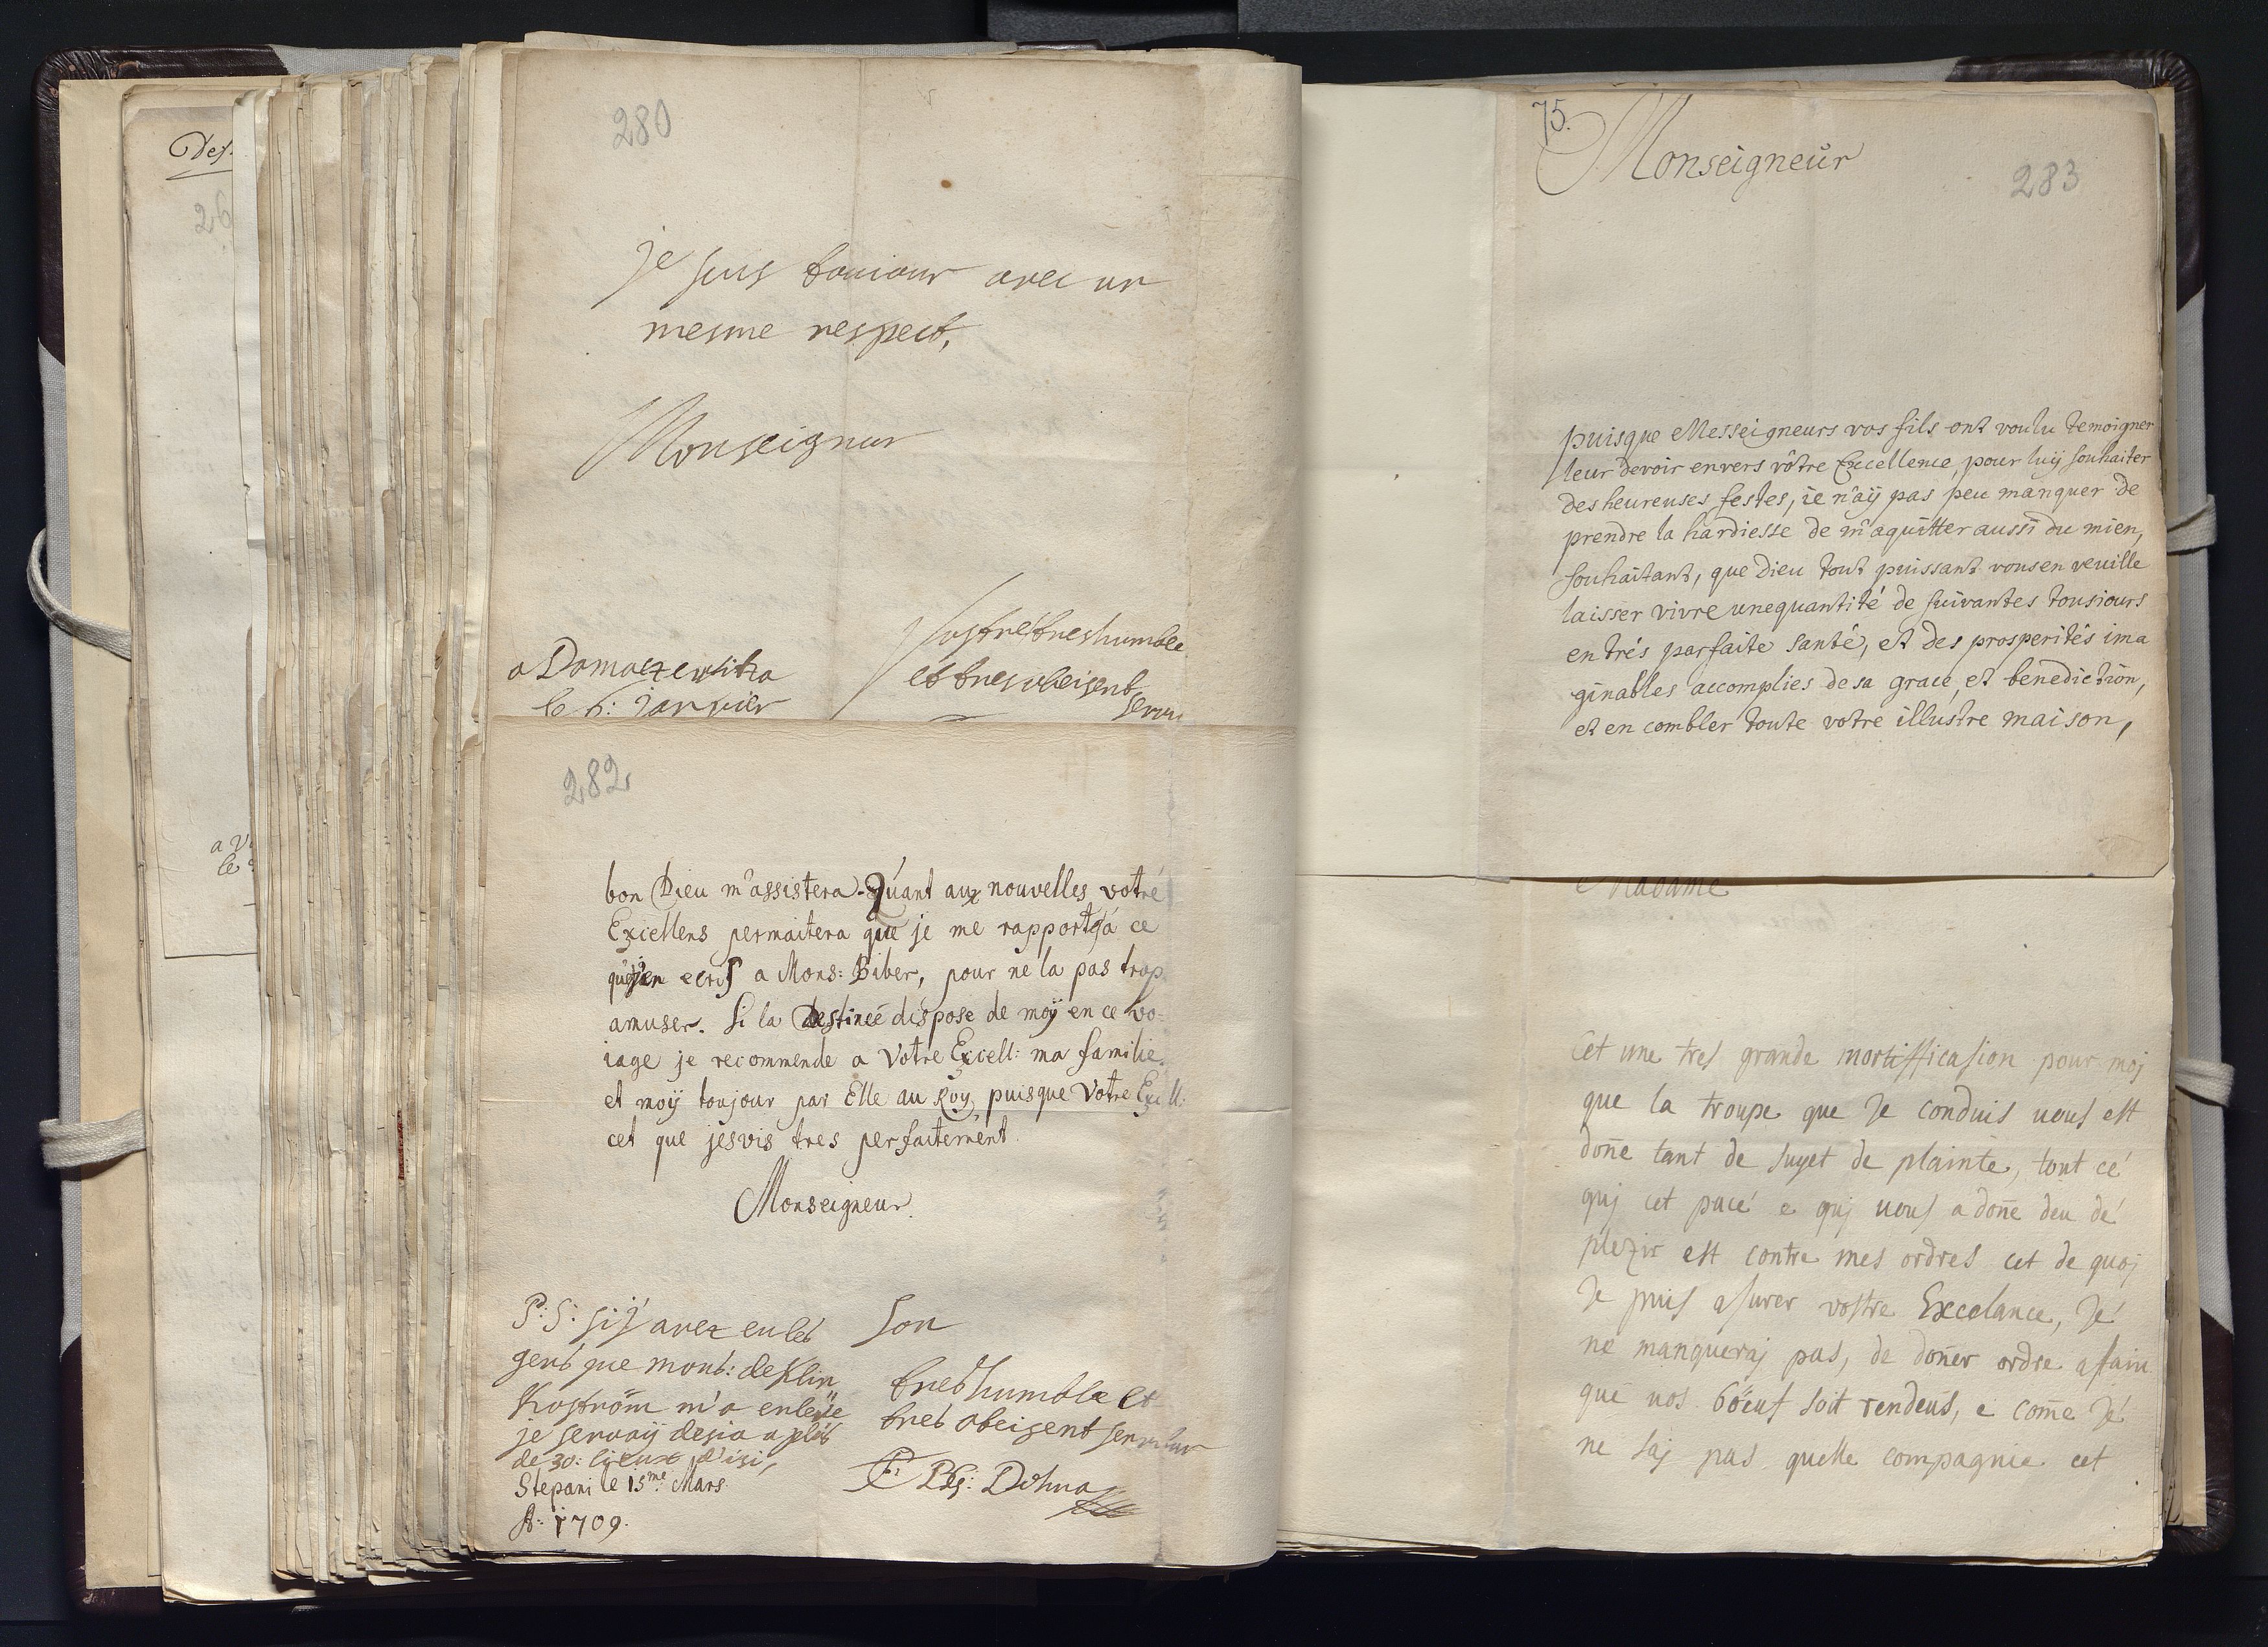 Des
26
a
le
280
Je suis toujour avec un
mesme respect,
Monseigneur
Vostre treshumble
et tresobeisent
serv
a Domaczewitza
le 6: janvier
282
bon Dieu m'assistera. Quant aux nouvelles votre
Excellens permaitera que je me rapporte á ce
que j'en ecris a Mons: Biber, pour ne la pas trop
amuser. Si la Destineé dispose de moÿ en ce vo-
iage je recommende a Votre Excell: ma familie,
et moÿ toujour par Elle au Roy, puisque Votre Excell:
cet que jesvis tres perfaitement.
Monseigneur.
P:S: si j'avez eu les
gens que mons: de Klin
Koström m'a enleüe
je servaij desia a plus
de 30: lieux d'isi,
Stepani le 15me Mars.
A: 1709.
Son
tres humble et
tres obeisent serviteur
Dohna
75.
Monseigneur
283
puisque Messeigneurs vos fils ont voulu temoigner
leur devoir envers vôtre Excellence, pour luÿ souhaiter
des heureuses festes, ie n'aÿ pas peu manquer de
prendre la hardiesse de m'aquitter aussi du mien,
souhaitant, que Dieu tout puissant vous en veuille
laisser vivre une quantité de suivantes tousiours
en trés parfaite santé, et des prosperités ima
ginables accomplies de sa grace, et benediction,
et en combler toute votre illustre maison,
Madame
Cet une tres grande mortifficasion pour moj
que la troupe que Je conduis vous est
doñe tant de suyet de plainte, tout ce
quj cet pacé e quj vous a doñe deu dé
plezir est contre mes ordres cet de quoj
Je puis asurer vostre Excelance, Je
ne manqueraj pas, de doñer ordre affain
que vos böeuf soit rendeüs, e come Je
ne saj pas quelle compagnie cet